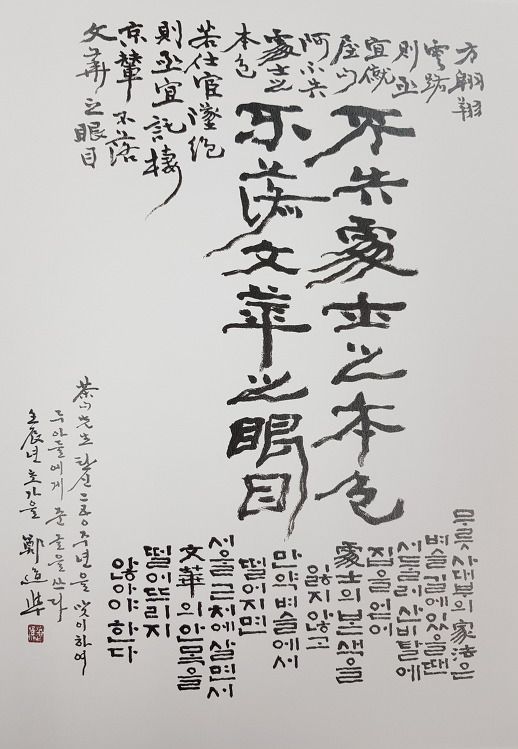 方翱翔
雲路
則亟
宜僦
屋山
阿不失
處士之
本色
若仕宦墜絶
則亟宜託棲
京輦 不落
文華之眼目
不失處士之本色
不落文華之眼目
무릇 사대부의 家法은
벼슬길에 있을땐
서둘러 산비탈에
집을 얻어
處士의 본색을
잃지 않고
만약 벼슬에서
떨어지면
서울 근처에 살면서
文華의 안목을
떨어뜨리지
않아야 한다
茶山先生 탄신 二五〇주년을 맞이하여
두 아들에게 준 글을 쓰다
壬辰년 초가을 鄭